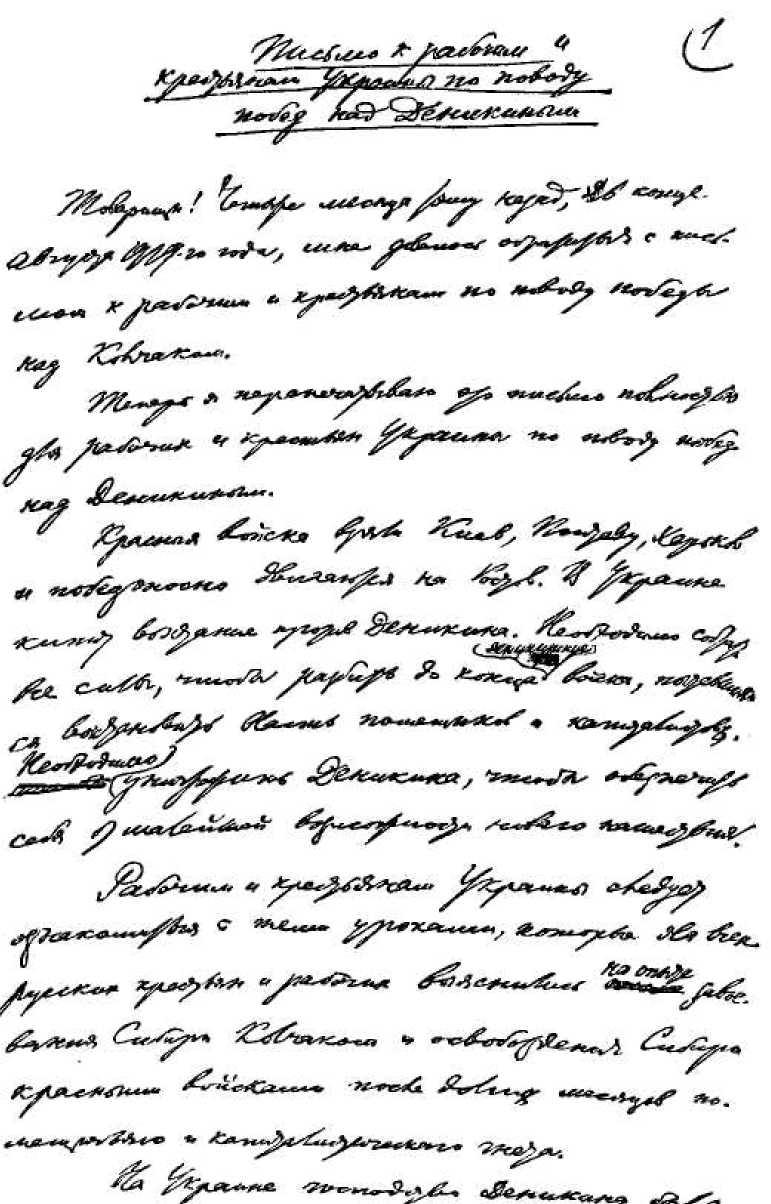 1
Письмо к рабочим и
крестьянам Украины по поводу
побед над Деникиным
Товарищи! Четыре месяца тому назад, в конце
августа 1919-го года, мне довелось обратиться с пись-
мом к рабочим и крестьянам по поводу победы
над Колчаком.
Теперь я перепечатываю это письмо полностью
для рабочих и крестьян Украины по поводу побед
над Деникиным.
Красные войска взяли Киев, Полтаву, Харьков
и победоносно двигаются на Ростов. В Украине
кипит восстание против Деникина. Необходимо собрать
все силы, чтобы разбить до конца деникинские войска, пытавшие-
ся восстановить власть помещиков и капиталистов.
Необходимо уничтожить Деникина, чтобы обеспечить
себя от малейшей возможности нового нашествия.
Рабочим и крестьянам Украины следует
ознакомиться с теми уроками, которые для всех
русских крестьян и рабочих выяснились на опыте завое-
вания Сибири Колчаком и освобождения Сибири
красными войсками после долгих месяцев по-
мещичьего и капиталистического гнета.
На Украине господство Деникина было